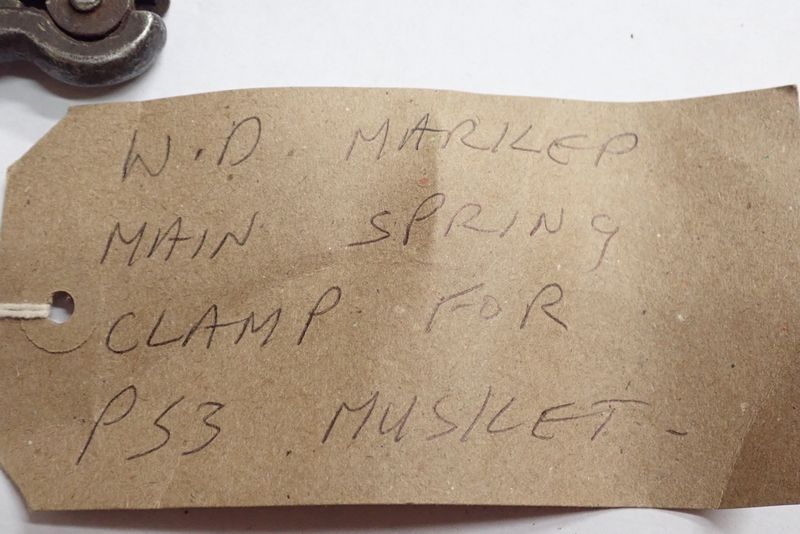 W.D MARKED
MAIN SPRING
CLAMP FOR
P53 MUSKET-